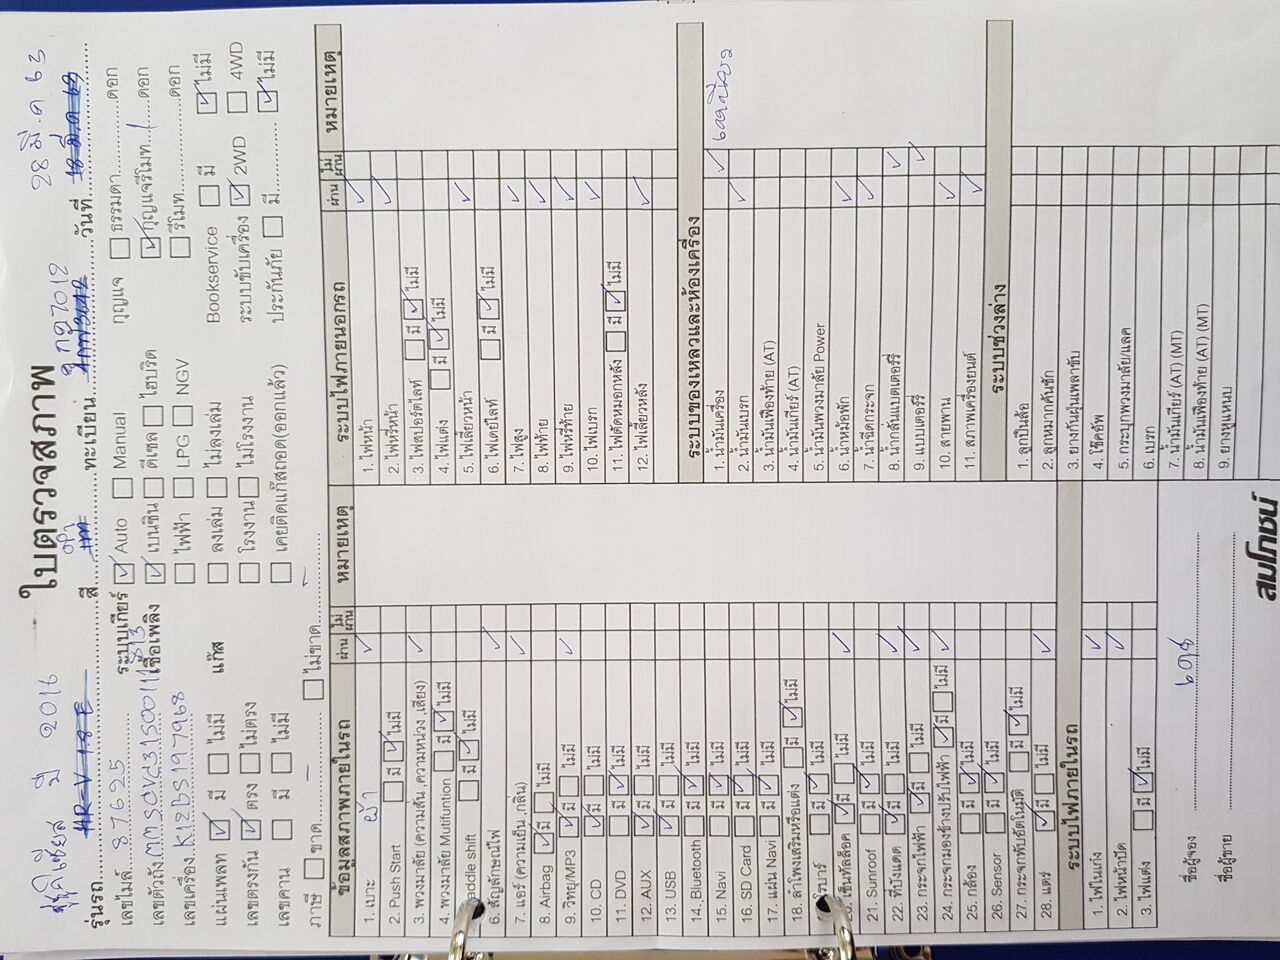 ใบตรวจสภาพ
ซูซูกิเซียส ปี 2016
28 มี.ค 63
รุ่นรถ HR-V 1.8 E
สี เทา
ทะเบียน
7012
วันที่
เลขไมล์ 87625
ระบบเกียร์ ☑ Auto ☐ Manual
กุญแจ ☐ ธรรมดา ดอก
เลขตัวถัง
เชื้อเพลิง ☑ เบนซิน ☐ ดีเซล ☐ ไฮบริด
☑ กุญแจรีโมท 1 ดอก
เลขเครื่อง K12BS197968
☐ ไฟฟ้า ☐ LPG ☐ NGV
☐ รีโมท ดอก
แผ่นเพลท ☑ มี ☐ ไม่มี
แก๊ส ☐ ลงเล่ม ☐ ไม่ลงเล่ม
Bookservice ☐ มี ☑ ไม่มี
เลขตรงกัน ☑ ตรง ☐ ไม่ตรง
☐ โรงงาน ☐ ไม่โรงงาน
ระบบขับเครื่อง ☑ 2WD ☐ 4WD
เลขคาน ☐ มี ☐ ไม่มี
☐ เคยติดแก๊สถอด(ออกแล้ว)
ประกันภัย ☐ มี ☑ ไม่มี
ภาษี ☐ ขาด ☐ ไม่ขาด
ข้อมูลสภาพภายในรถ ผ่าน ไม่ผ่าน หมายเหตุ
1. เบาะ ผ้า ✓
2. Push Start ☐ มี ☑ ไม่มี
3. พวงมาลัย (ความสั่น ,ความหน่วง ,เสียง) ✓
4. พวงมาลัย Mutifuntion ☐ มี ☑ ไม่มี
addle shift ☐ มี ☑ ไม่มี
6. สัญลักษณ์ไฟ ✓
7. แอร์ (ความเย็น ,กลิ่น) ✓
8. Airbag ☑ มี ☐ ไม่มี
9. วิทยุ/MP3 ☑ มี ☐ ไม่มี ✓
10. CD ☑ มี ☐ ไม่มี
11. DVD ☐ มี ☑ ไม่มี
12. AUX ☑ มี ☐ ไม่มี
13. USB ☑ มี ☐ ไม่มี
14. Bluetooth ☐ มี ☑ ไม่มี
15. Navi ☐ มี ☑ ไม่มี
16. SD Card ☐ มี ☑ ไม่มี
17. แผ่น Navi ☐ มี ☑ ไม่มี
18. ลำโพงเสริมหรือแต่ง ☐ มี ☑ ไม่มี
โรบาร์ ☐ มี ☑ ไม่มี
20. เซ็นทัลล็อค ☑ มี ☐ ไม่มี ✓
21. Sunroof ☐ มี ☑ ไม่มี
22. ที่บังแดด ☑ มี ☐ ไม่มี ✓
23. กระจกไฟฟ้า ☑ มี ☐ ไม่มี ✓
24. กระจกมองข้างปรับไฟฟ้า ☑ มี ☐ ไม่มี ✓
25. กล้อง ☐ มี ☑ ไม่มี
26. Sensor ☐ มี ☑ ไม่มี
27. กระจกพับอัตโนมัติ ☐ มี ☑ ไม่มี
28. แตร์ ☑ มี ☐ ไม่มี ✓
ระบบไฟภายในรถ
1. ไฟในเก๋ง ✓
2. ไฟหน้าปัด ✓
3. ไฟแต่ง ☐ มี ☑ ไม่มี
ชื่อผู้จอง
ชื่อผู้ขาย
ระบบไฟภายนอกรถ ผ่าน ไม่ผ่าน หมายเหตุ
1. ไฟหน้า ✓
2. ไฟหรี่หน้า ✓
3. ไฟสปอร์ตไลท์ ☐ มี ☑ ไม่มี
4. ไฟแต่ง ☐ มี ☑ ไม่มี
5. ไฟเลี้ยวหน้า ✓
6. ไฟเดย์ไลท์ ☐ มี ☑ ไม่มี
7. ไฟสูง ✓
8. ไฟท้าย ✓
9. ไฟหรี่ท้าย ✓
10. ไฟเบรก ✓
11. ไฟตัดหมอกหลัง ☐ มี ☑ ไม่มี
12. ไฟเลี้ยวหลัง ✓
ระบบของเหลวและห้องเครื่อง
1. น้ำมันเครื่อง ✓
2. น้ำมันเบรก ✓
3. น้ำมันเฟืองท้าย (AT)
4. น้ำมันเกียร์ (AT)
5. น้ำมันพวงมาลัย Power
6. น้ำหม้อพัก ✓
7. น้ำฉีดกระจก ✓
8. น้ำกลั่นแบตเตอร์รี่ ✓
9. แบบเตอร์รี่ ✓
10. สายพาน ✓
11. สภาพเครื่องยนต์ ✓
ระบบช่วงล่าง
1. ลูกปืนล้อ
2. ลูกหมากคันชัก
3. ยางกันฝุ่นเพลาขับ
4. โช๊คอัพ
5. กระปุกพวงมาลัย/แลค
6. เบรก
7. น้ำมันเกียร์ (AT) (MT)
8. น้ำมันเฟืองท้าย (AT) (MT)
9. ยางหูแหนบ
สมโภชน์